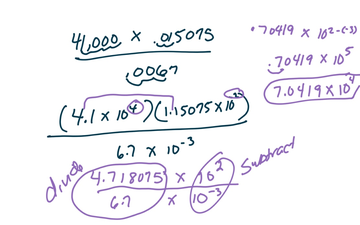 41,000 × .015075
.0067
(4.1 × 10⁴)(1.15075 × 10⁻²)
6.7 × 10⁻³
divide 4.718075 × 10² subtract
6.7 × 10⁻³
.70419 × 10²⁻⁽⁻³⁾
.70419 × 10⁵
7.0419 × 10⁴